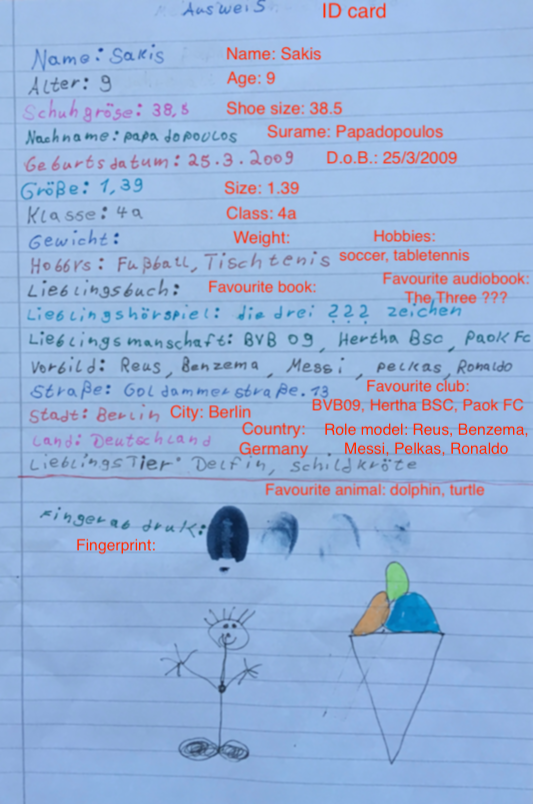 Ausweis ID card
Name: Sakis Name: Sakis
Alter: 9 Age: 9
Schuhgröse: 38,5 Shoe size: 38.5
Nachname: papadopoulos Surame: Papadopoulos
Geburtsdatum: 25.3.2009 D.o.B.: 25/3/2009
Größe: 1,39 Size: 1.39
Klasse: 4a Class: 4a
Gewicht: Weight: Hobbies:
Hobbys: Fußball, Tischtenis soccer, tabletennis
Lieblingsbuch: Favourite book: Favourite audiobook:
The Three ???
Lieblingshörspiel: die drei ??? zeichen
Lieblingsmanschaft: BVB 09, Hertha Bsc, Paok Fc
Vorbild: Reus, Benzema, Messi, pelkas, Ronaldo
Straße: Goldammerstraße.13 Favourite club:
BVB09, Hertha BSC, Paok FC
Stadt: Berlin City: Berlin
Land: Deutschland Country: Germany
Role model: Reus, Benzema,
Messi, Pelkas, Ronaldo
LieblingsTier: Delfin, Schildkröte
Favourite animal: dolphin, turtle
Fingerabdruk:
Fingerprint: